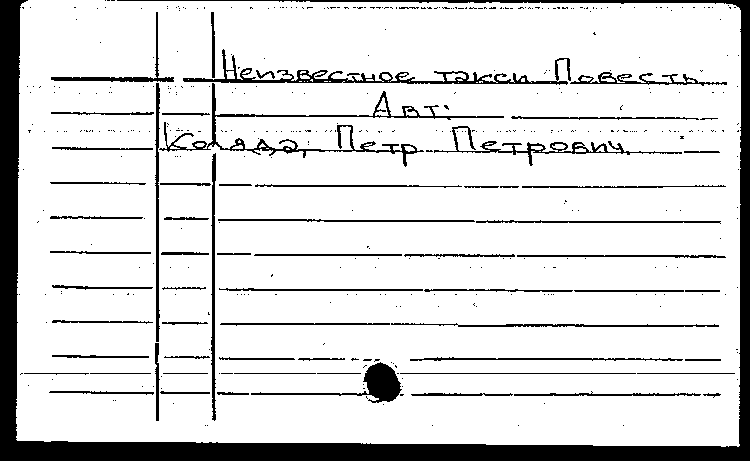 Неизвестное такси Повесть
Авт:
Коляда, Петр Петрович.